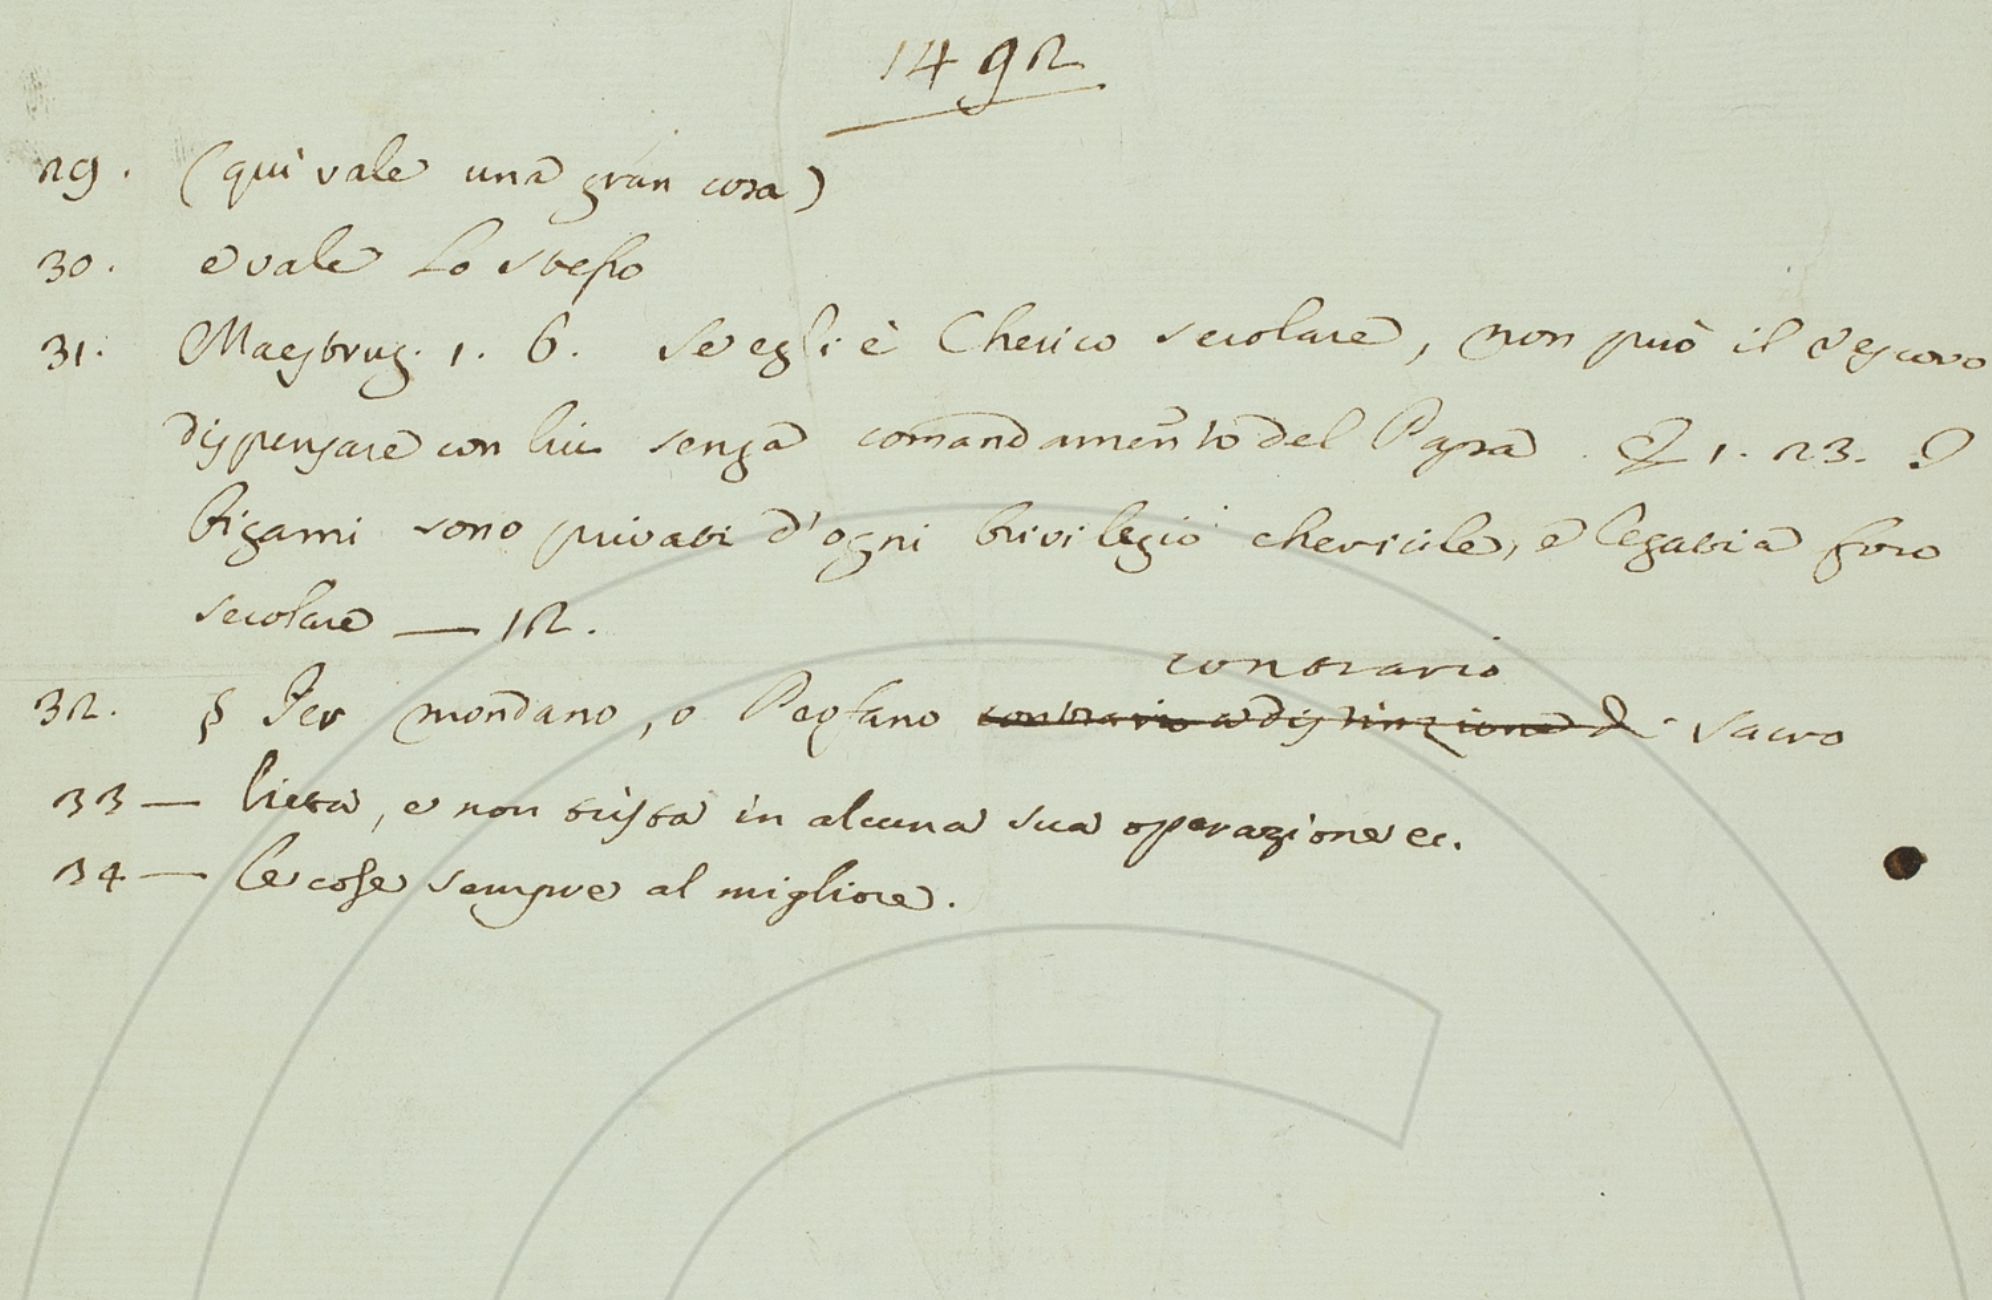 1492
29. (quì vale una gran cosa)
30. e vale lo stesso
31. Maestruz. 1. 6. Se egli è Cherico secolare, non può il Vescovo
dispensare con lui senza comandamento del Papa. E 1. 23. I
bigami sono privati d'ogni brivilegio chericile, e legati a foro
secolare — 12.
contrario
32. § Per mondano, o Profano contrario a distinzione di sacro
33 — lieta, e non trista in alcuna sua operazione ec.
34 — le cose sempre al migliore.